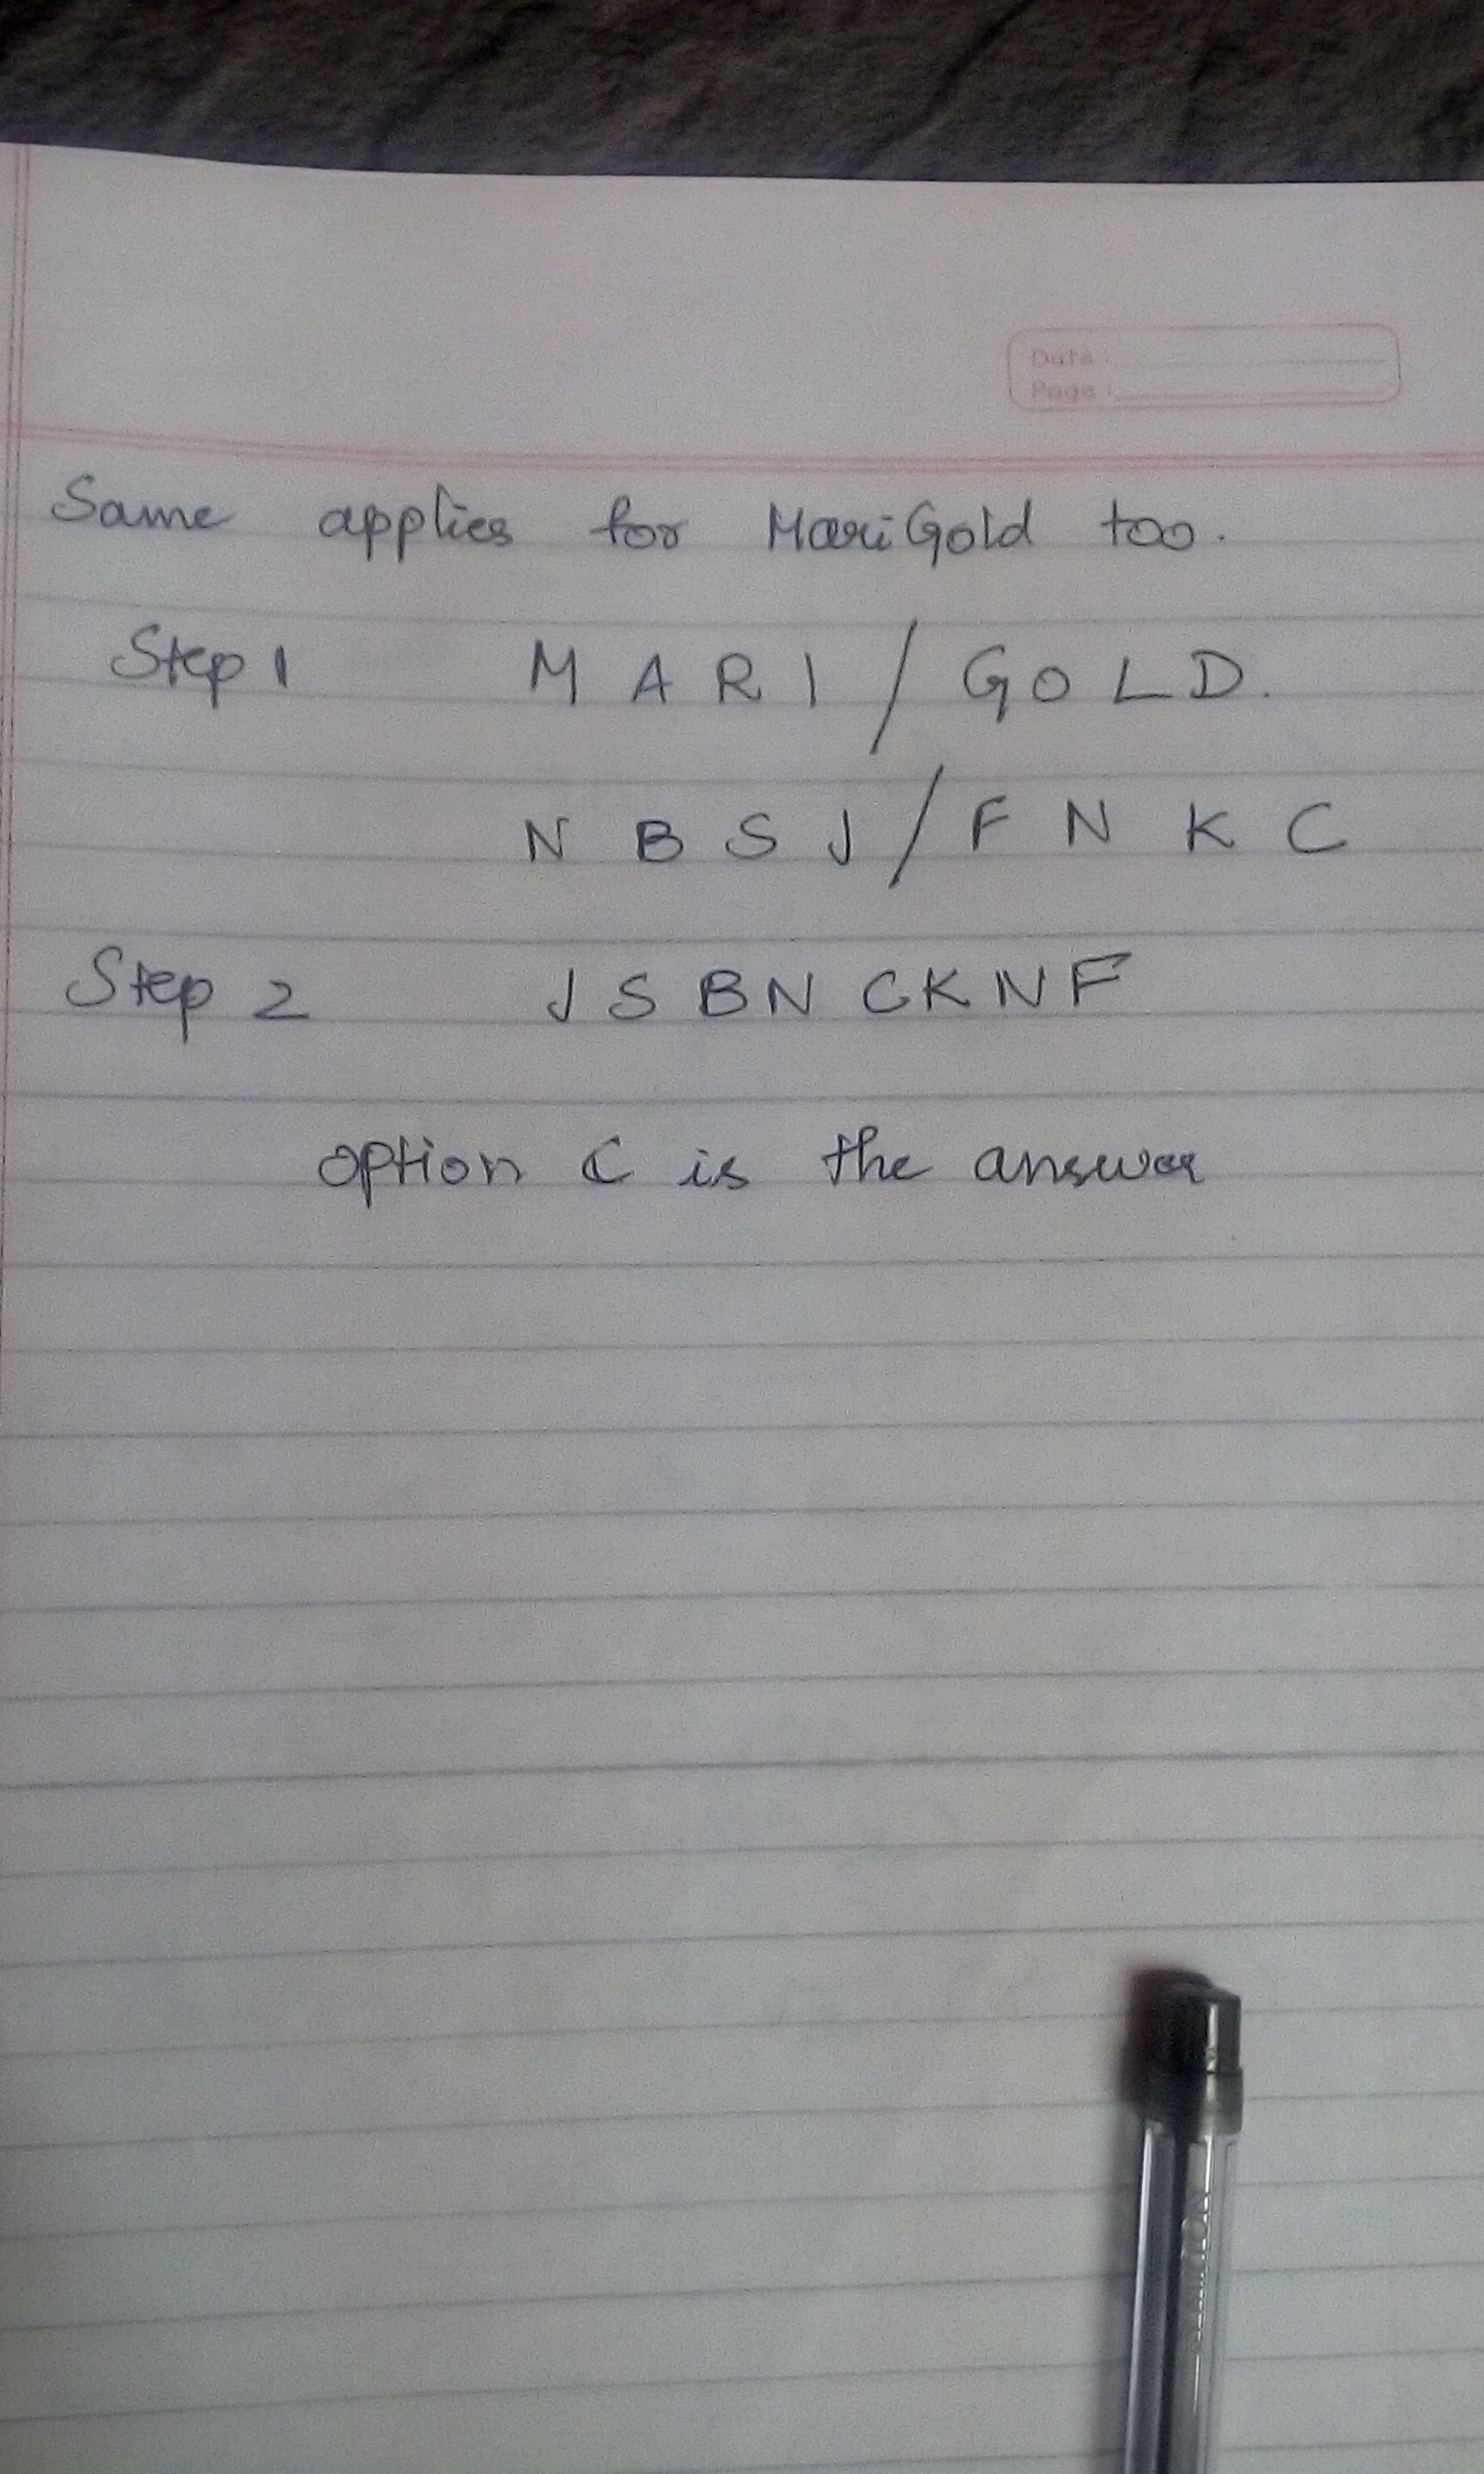 Date :
Page :
Same applies for MariGold too.
Step 1 M A R I / G O L D.
N B S J / F N K C
Step 2 J S B N C K N F
option C is the answer